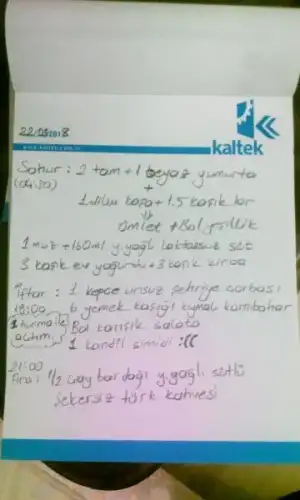 22/05/2018
kaltek
Sahur : 2 tam + 1 beyaz yumurta
+
1 dilim kapa + 1.5 kaşık lor
omlet + Bol yeşillik
1 muz + 160ml y.yağlı laktozsuz süt
3 kaşık ev yoğurdu + 3 kaşık
İftar : 1 kepçe unsuz şehriye çorbası
6 yemek kaşığı kıymalı karnıbahar
1 hurma ile açtım
Bol karışık salata
1 kandil simidi :((
21:00
Ara : 1/2 çay bardağı y.yağlı sütlü
şekersiz türk kahvesi